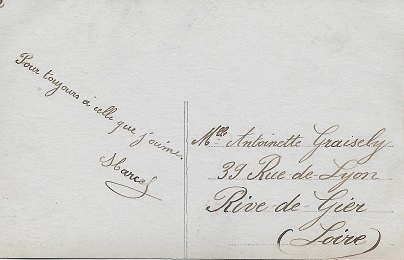 Pour toujours à celle que j'aime.
Marcel
Mlle Antoinette Graisely
39 Rue de Lyon
Rive-de-Gier
(Loire)